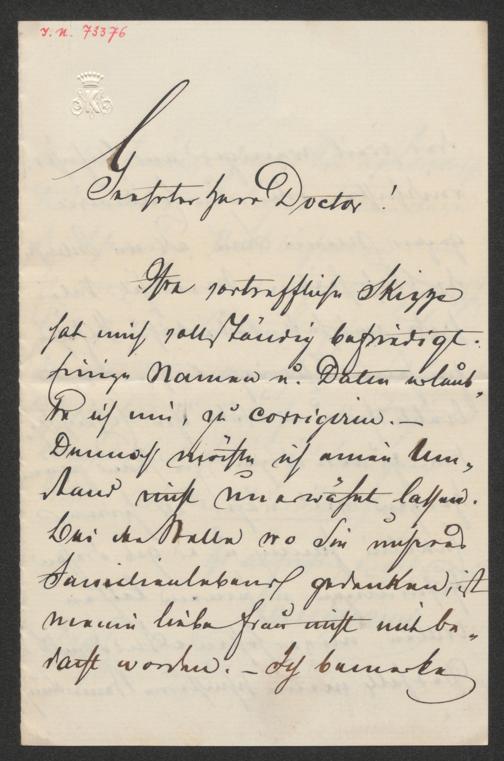 I. N. 73376
Geehrter Herr Doctor!
Ihre vortreffliche Skizze
hat mich vollständig befriedigt.
Einige Namen u. Daten erlaub„
te ich mir, zu corrigiren. —
Dennoch möchte ich einen Um„
stand nicht unerwähnt lassen.
Bei der Stelle wo Sie unseres
Familienlebens gedenken, ist
meine liebe Frau nicht mit be„
dacht worden. — Ich bemerke